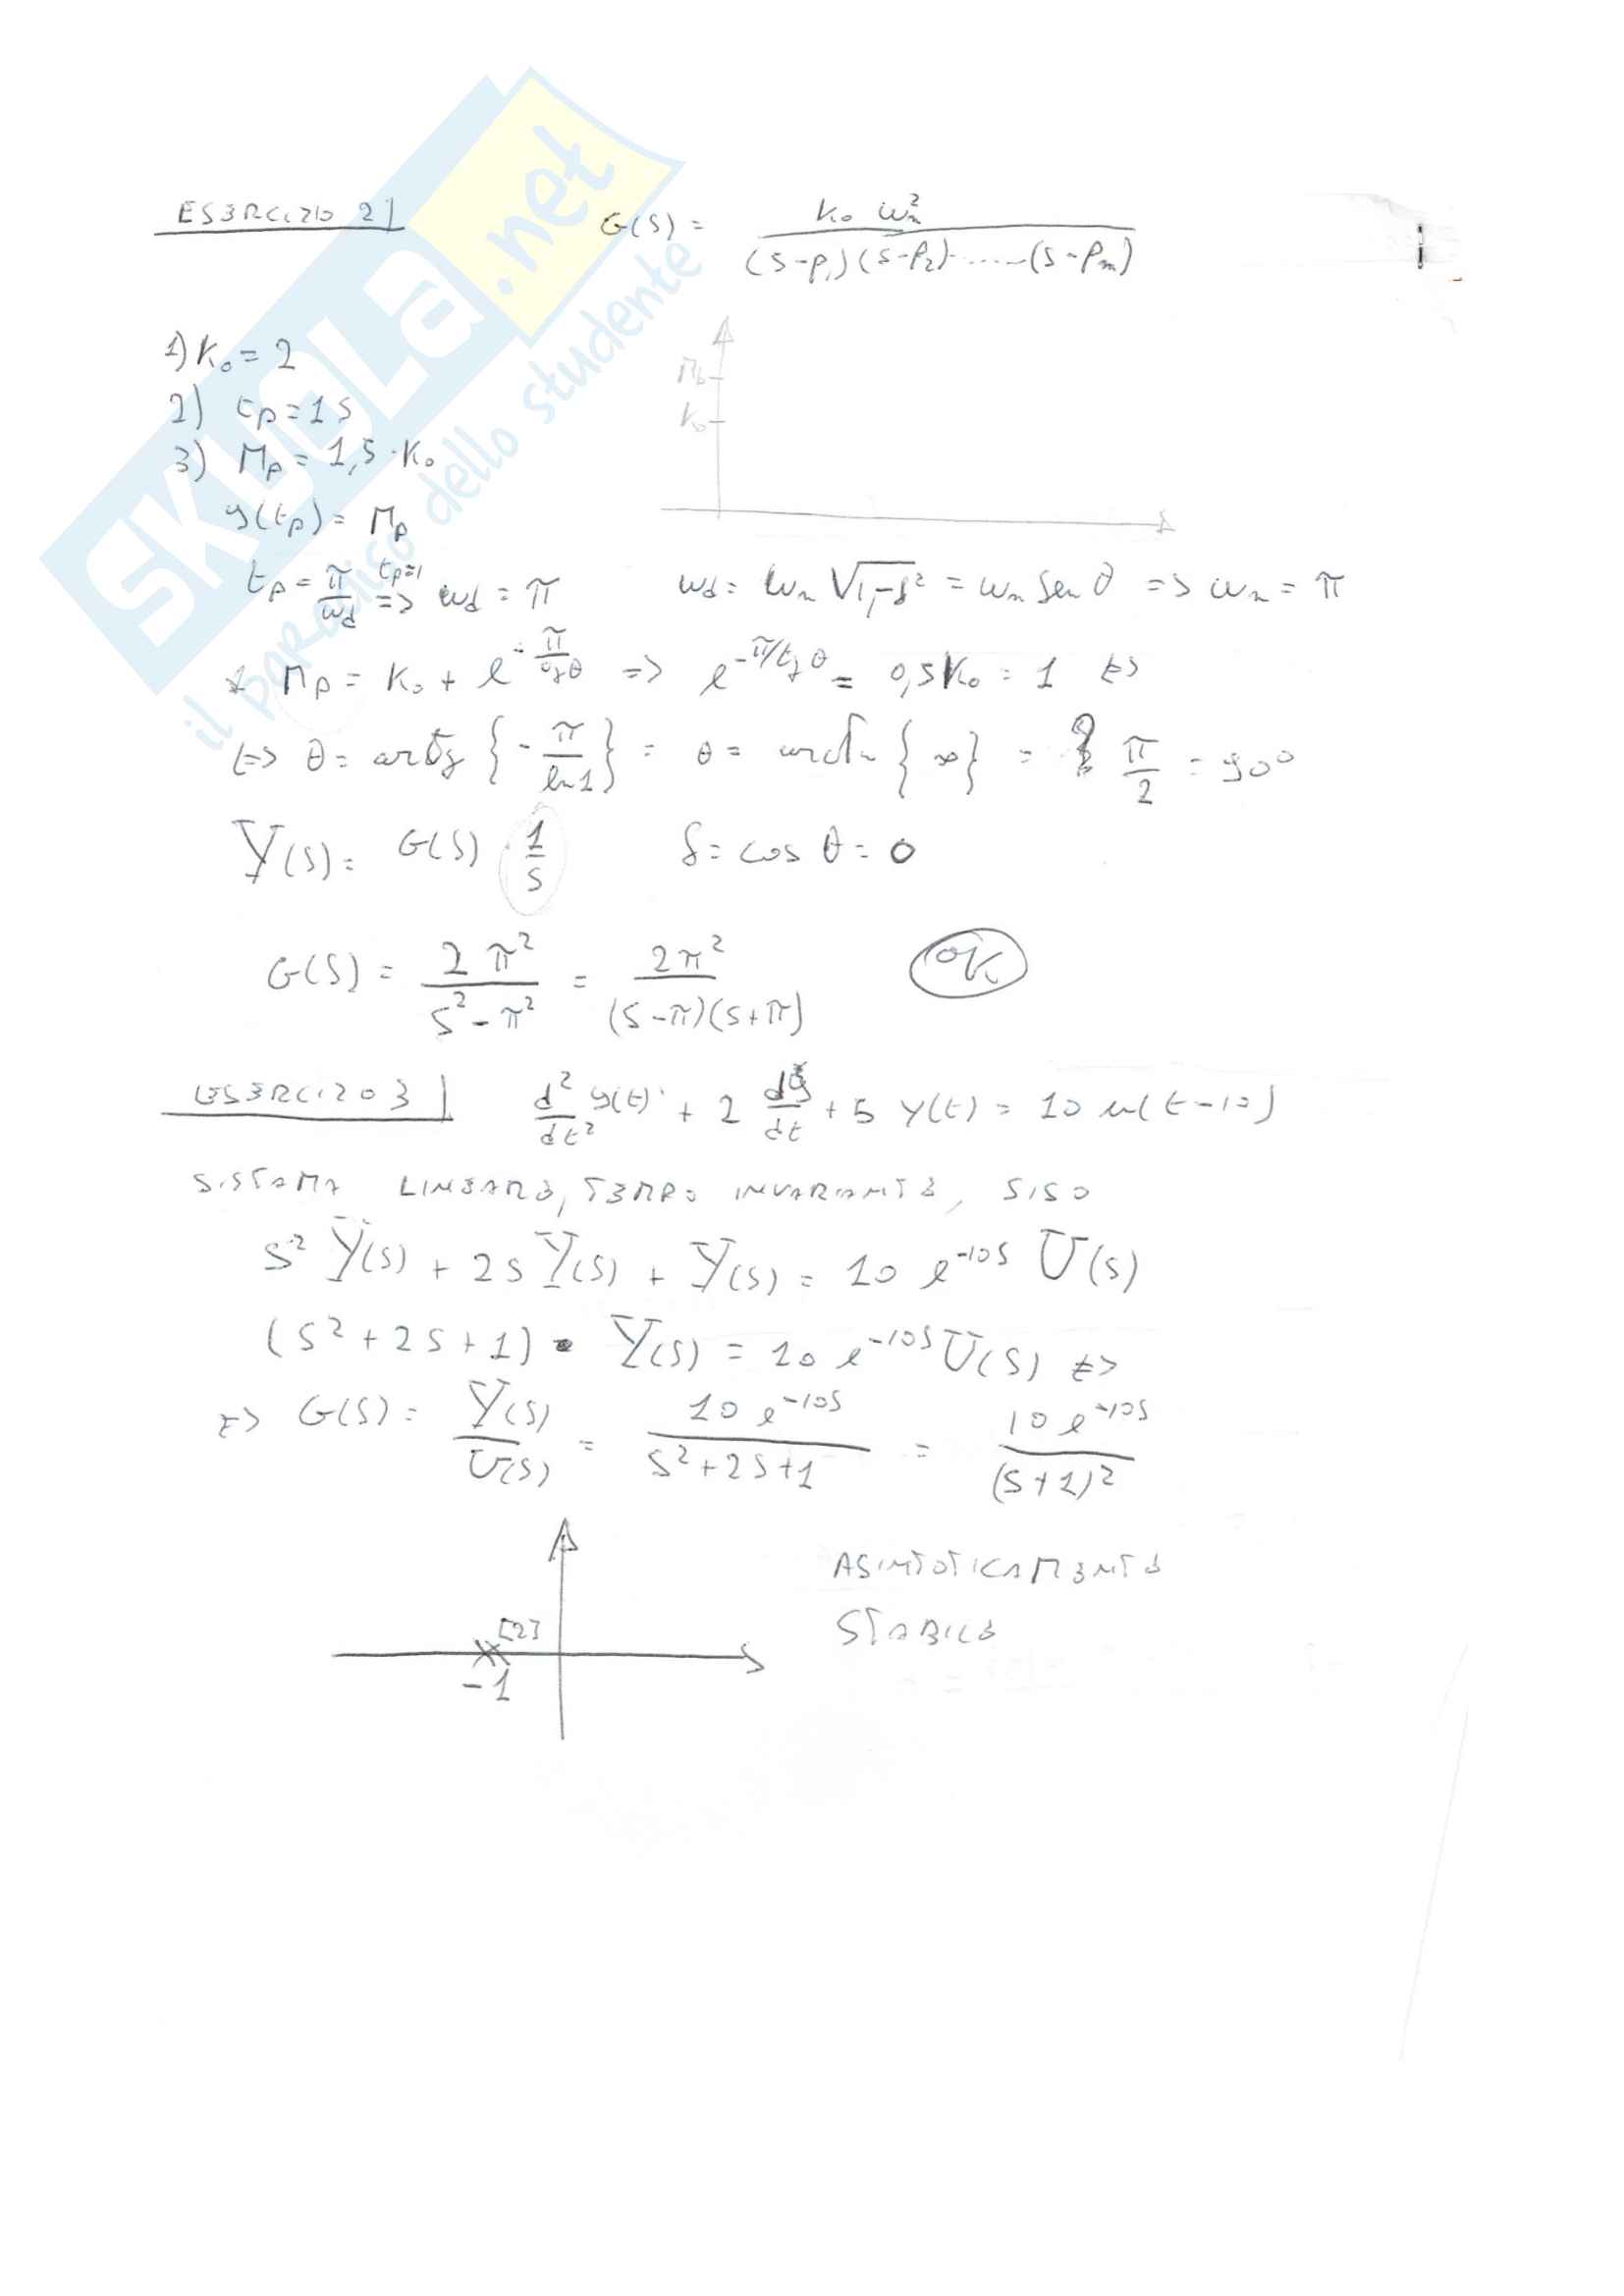 SKUOLA.net
il paradiso dello studente
ESERCIZIO 2 G(S) = K₀ ωₙ² / (S-P₁)(S-P₂)......(S-Pₘ)
1) K₀ = 2
2) tp = 1 S
3) Mp = 1,5 · K₀
Mp
K₀
y(tp) = Mp
tp = π/ωd tp=1 => ωd = π ωd = ωn √(1-δ²) = ωn Sen θ => ωn = π
Mp = K₀ + e^(-π/tgθ) => e^(-π/tgθ) = 0,5K₀ = 1 <=>
<=> θ = artg {-π/ln1} = θ = arctn {∞} = π/2 = 90°
Y(S) = G(S) 1/S δ = cos θ = 0
G(S) = 2π²/(S²-π²) = 2π²/((S-π)(S+π)) OK
ESERCIZIO 3 d²/dt² y(t) + 2 dy/dt + 5 y(t) = 10 u(t-10)
SISTEMA LINEARE, TEMPO INVARIANTE, SISO
S² Y(S) + 2S Y(S) + Y(S) = 10 e^(-10S) U(S)
(S² + 2S + 1) · Y(S) = 10 e^(-10S) U(S) <=>
<=> G(S) = Y(S)/U(S) = 10 e^(-10S)/(S²+2S+1) = 10 e^(-10S)/(S+1)²
ASINTOTICAMENTE
STABILE
[2]
-1